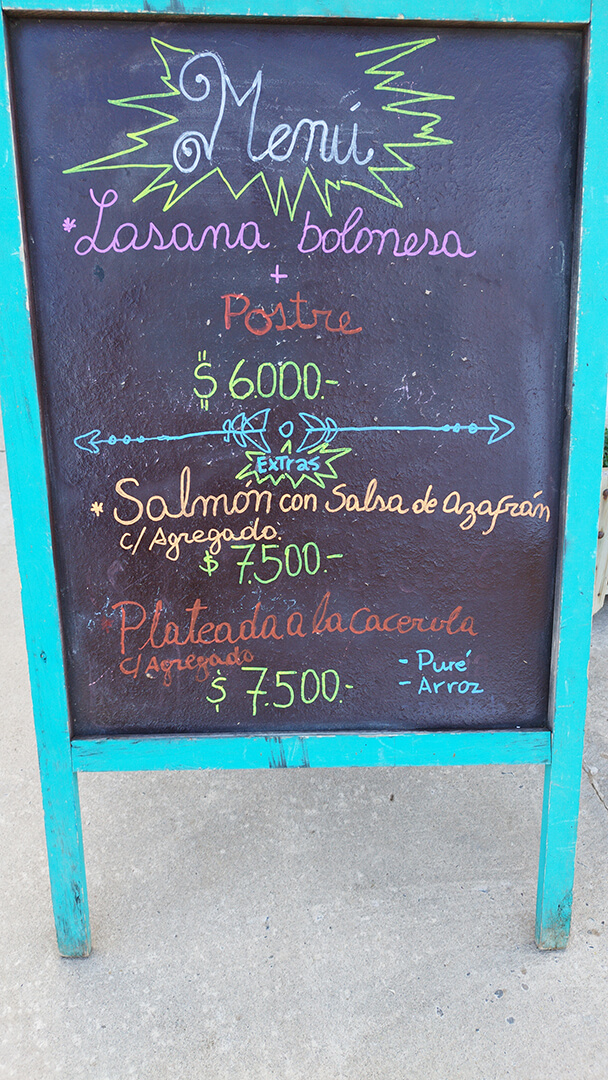 Menú
*Lasana bolonesa
+
Postre
$ 6.000.-
Extras
* Salmón con Salsa de azafrán
c/ Agregado.
$ 7.500.-
*Plateada a la cacerola
c/ Agregado
- Puré
- Arroz
$ 7.500.-